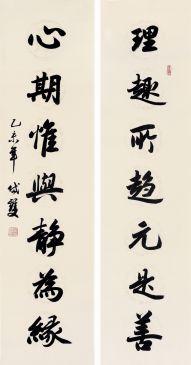 理趣所趋元是善
心期惟與静為緣
乙未年 城雙